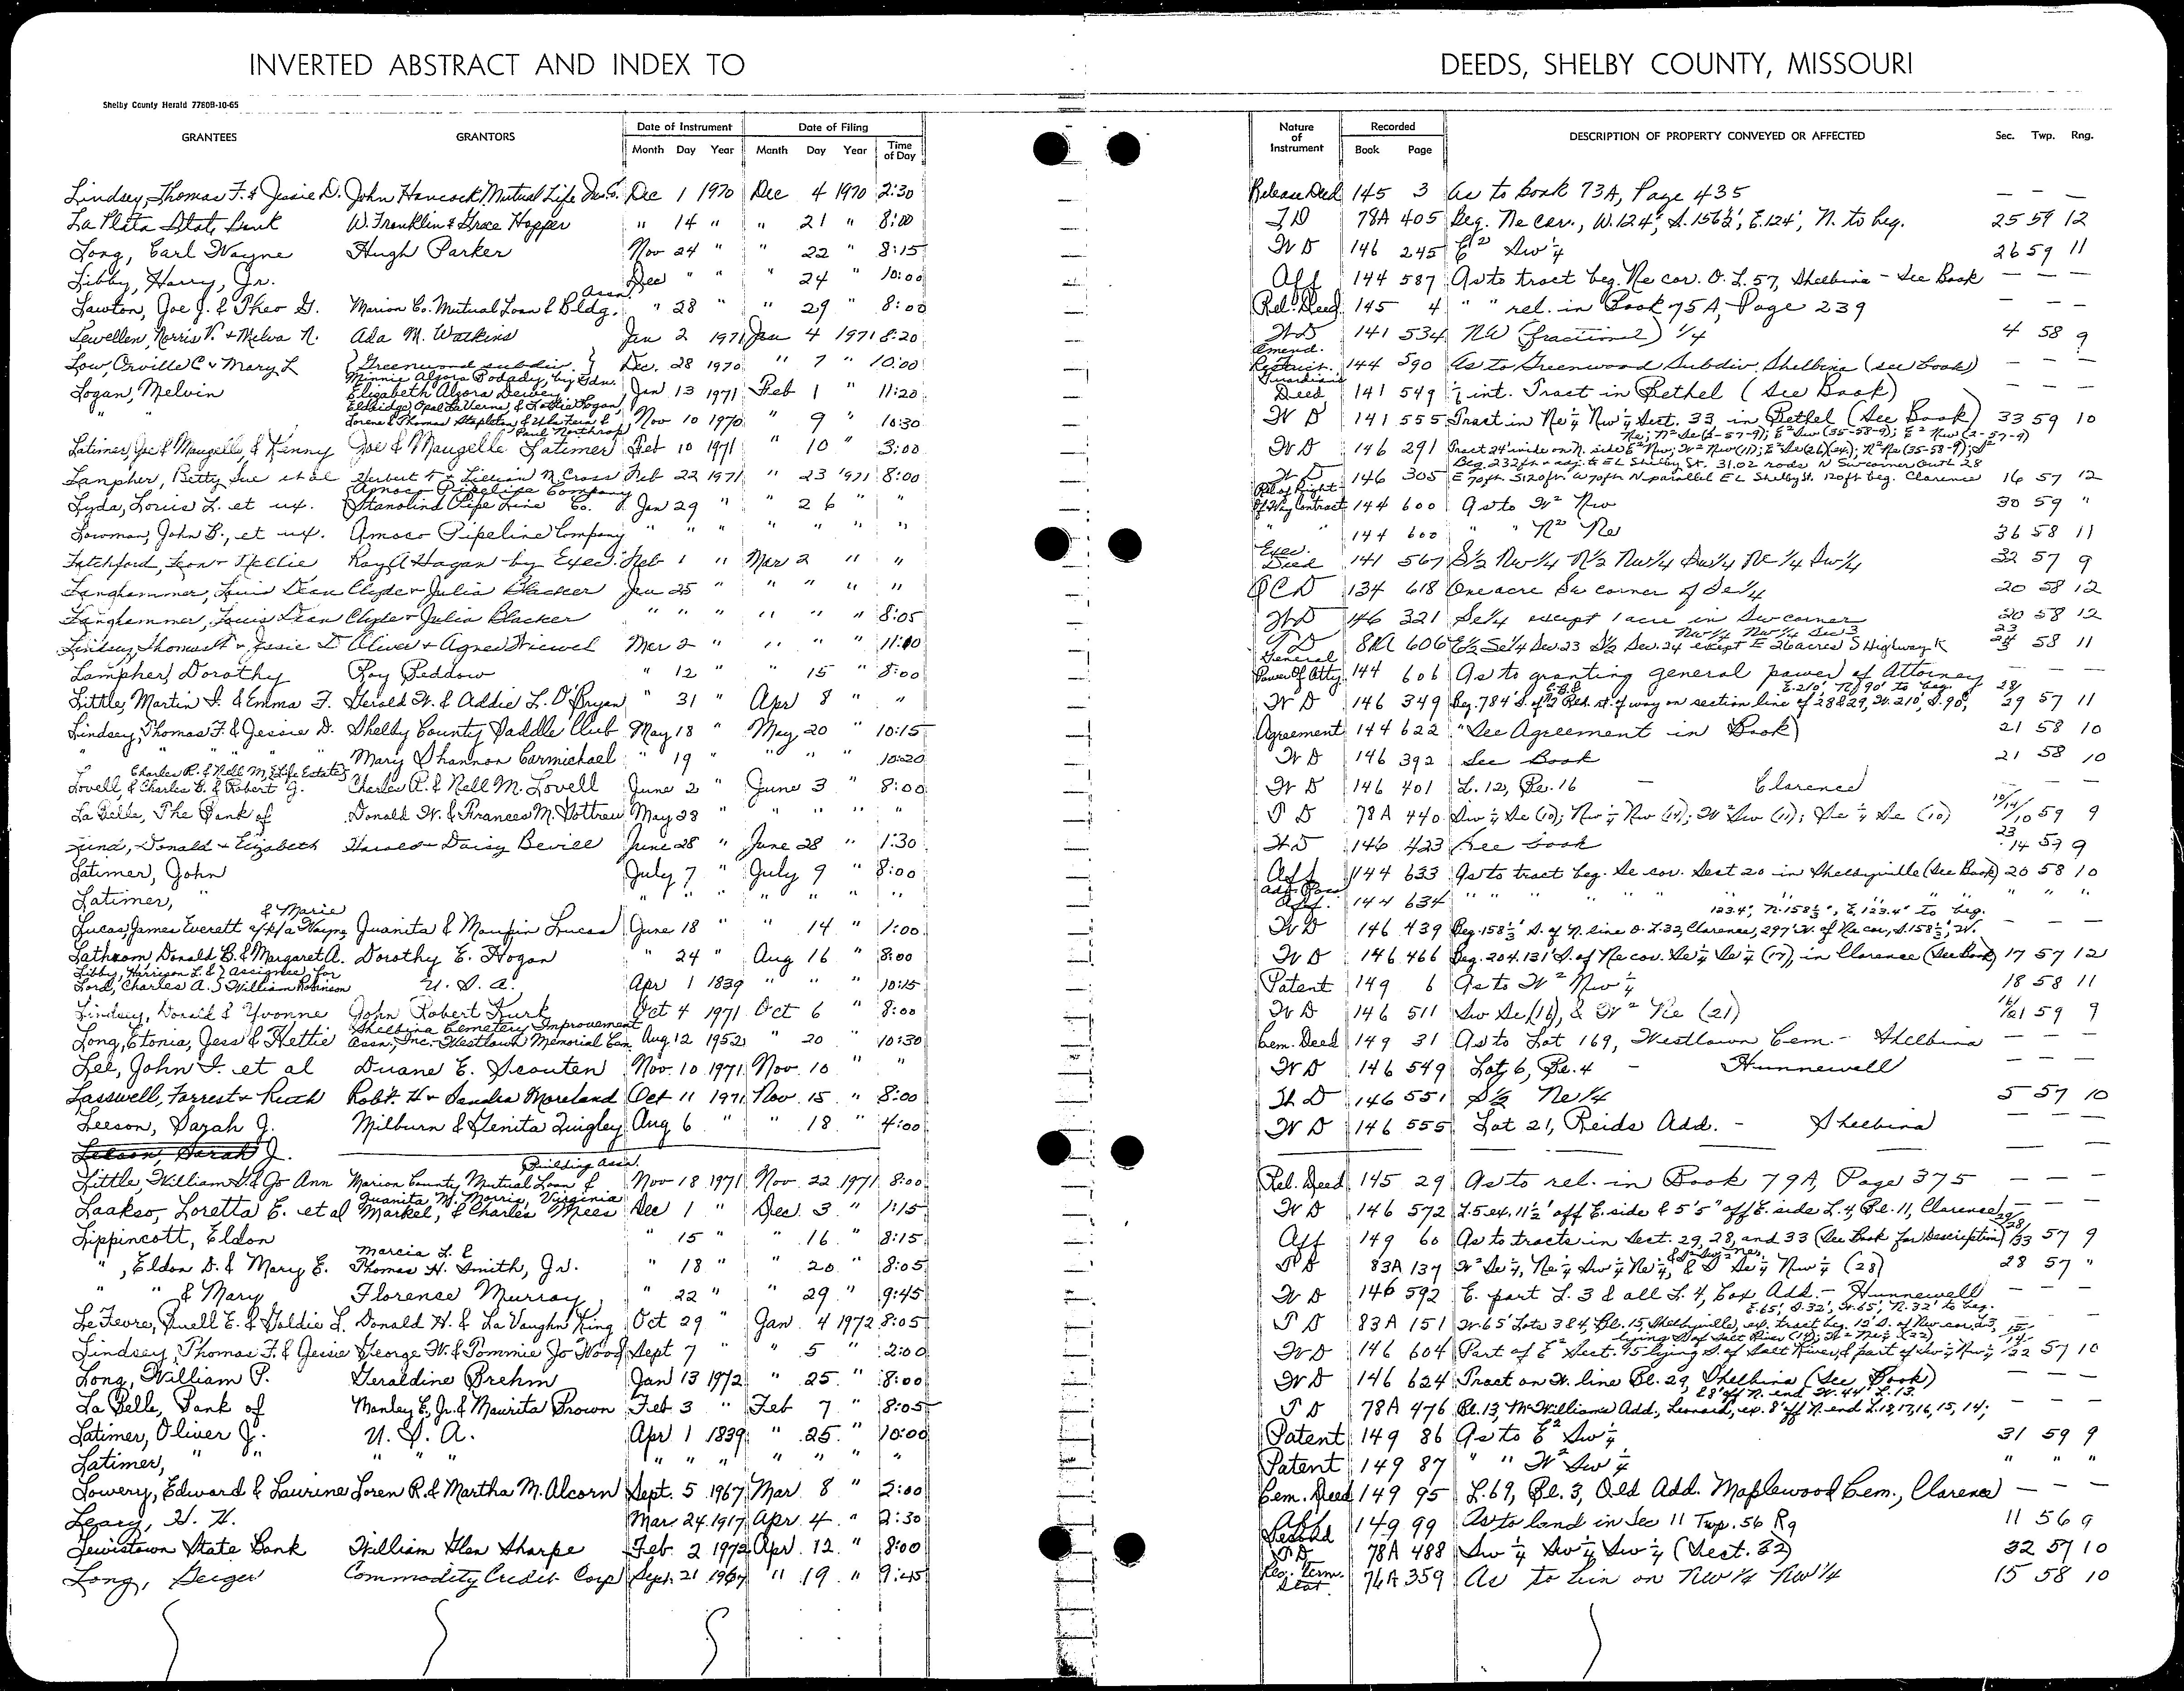 INVERTED ABSTRACT AND INDEX TO DEEDS, SHELBY COUNTY, MISSOURI
Shelby County Herald 7780B-10-65
GRANTEES GRANTORS Date of Instrument Month Day Year Date of Filing Month Day Year Time of Day Nature of Instrument Recorded Book Page DESCRIPTION OF PROPERTY CONVEYED OR AFFECTED Sec. Twp. Rng.
Lindsey, Thomas F. & Jessie D. John Hancock Mutual Life Ins. Co. Dec 1 1970 Dec 4 1970 2:30 Release Deed 145 3 As to Book 73A, Page 435 — — —
La Plata State Bank W. Franklin & Grace Hopper " 14 " " 21 " 8:00 TD 78A 405 Beg. Ne cor., W. 124', S. 156½', E. 124', N. to beg. 25 59 12
Long, Carl Wayne Hugh Parker Nov 24 " " 22 " 8:15 WD 146 245 E² Sw¼ 26 59 11
Libby, Harry, Jr. Dec " " " 24 " 10:00 Aff 144 587 As to tract beg. Ne cor. O. L. 57, Shelbina - See Book — — —
Lawton, Joe J. & Theo G. Marion Co. Mutual Loan & Bldg. Assn. " 28 " " 29 " 8:00 Rel. Deed 145 4 " " rel. in Book 75A, Page 239 — — —
Lewellen, Norris V. & Melva N. Ada M. Watkins Jan 2 1971 Jan 4 1971 8:20 WD 141 534 NW (fractional) 1/4 4 58 9
Low, Orville C & Mary L {Greenwood subdiv.} Dec. 28 1970 " 7 " 10:00 Amend. Restrict. 144 590 As to Greenwood Subdiv, Shelbina (see book) — — —
Logan, Melvin Minnie Algora Podady, by Gdn. Jan 13 1971 Feb 1 " 11:20 Guardian's Deed 141 549 int. Tract in Bethel (See Book) — — —
" " Elizabeth Algora Dewey, Eldridge, Opal LaVerna & Lottie Logan, Lorene & Thomas Stapleton & Ula Fern & Paul Northrop Nov 10 1970 " 9 " 10:30 WD 141 555 Tract in Ne¼ Nw¼ Sect. 33 in Bethel (See Book) 33 59 10
Latimer, Joe & Maugelle, & Kenny Joe & Maugelle Latimer Feb 10 1971 " 10 " 3:00 WD 146 291 Tract 24' wide on N. side E² Nw; W² Nw (11); E² Se (26)
Lanpher, Betty Sue et al Herbert T & Lillian M. Cross Feb 22 1971 " 23 1971 8:00 WD 146 305 Beg. 232 ft adj. to E L Shelby St. 31.02 rods N Sw corner Outl 28 E 70 ft. S 120 ft. W 70 ft N parallel E L Shelby St. 120 ft beg. Clarence 16 57 12
Lyda, Louie L. et ux. (Amoco Pipeline Company Stanolind Pipe Line Co. Jan 29 " " 26 " " Rel of Right of Way Contract 144 600 As to W² Nw 30 59 "
Lowman, John B., et ux. Amoco Pipeline Company " " " " " " " " 144 600 " " N² Ne 36 58 11
Latchford, Leon & Nellie Ray A Hagan by Exec. Feb 1 " Mar 2 " " Exec. Deed 141 567 S½ Nw¼ N½ Nw¼ Sw¼ Ne¼ Sw¼ 32 57 9
Langhammer, Louis Dean Clyde & Julia Blacker Jan 25 " " " " " QCD 134 618 One acre Sw corner of Se¼ 20 58 12
Langhammer, Louis Dean Clyde & Julia Blacker " " " " " " 8:05 WD 146 321 Se¼ except 1 acre in Sw corner 20 58 12
Lindsey, Thomas F & Jessie D Oliver & Agnes Friewel Mar 2 " " " " 11:00 TD 81A 606 E½ Se¼ Sec. 23 S½ Sec. 24 except E 26 acres S Highway K Nw¼ Nw¼ Sec 3 23 24 3 58 11
Lampher, Dorothy Roy Peddow " 12 " " 15 " 8:00 General Power Of Atty. 144 606 As to granting general power of Attorney — — —
Little, Martin I. & Emma F. Gerald W. & Addie L. O'Bryan " 31 " Apr 8 " " WD 146 349 Beg. 784' S. of C.B.&Q Rld. rt. of way on section line of 28 & 29, W. 210', S. 90', E. 210', N. 90' to beg. 28/29 57 11
Lindsey, Thomas F. & Jessie D. Shelby County Saddle Club May 18 " May 20 " 10:15 Agreement 144 622 "See Agreement in Book) 21 58 10
" " " " " Mary Shannon Carmichael " 19 " " " " 10:20 WD 146 392 See Book 21 58 10
Lovell, Charles R. & Nell M. (Life Estate) & Charles E. & Robert G. Charles R. & Nell M. Lovell June 2 " June 3 " 8:00 WD 146 401 L. 12, Bl. 16 — Clarence — — —
La Belle, The Bank of Donald W. & Frances M. Vottrew May 28 " " " " " TD 78A 440 Sw¼ Se (10); Nw¼ Nw (14); W² Sw (11); Se¼ Se (10) 59 9
Lund, Donald & Elizabeth Harold & Daisy Bevill June 28 " June 28 " 1:30 WD 146 423 See book 23 14 59 9
Latimer, John July 7 " July 9 " 8:00 Aff 144 633 As to tract beg. Se cor. Sect 20 in Shelbyville (See Book) 20 58 10
Latimer, " " " " " " " " Adv. Poss. Aff. 144 634 " " " " " " " " " "
Lucas, James Everett a/k/a Wayne & Marie Juanita & Maupin Lucas June 18 " " 14 " 1:00 WD 146 439 Beg. 158⅓' S. of N. line O. L. 32, Clarence, 297' W. of Ne cor, S. 158⅓', W. 123.4', N. 158⅓', E. 123.4' to beg. — — —
Lathrom, Donald B. & Margaret A. Dorothy E. Hogan " 24 " Aug 16 " 8:00 WD 146 466 Beg. 204.131' S. of Ne cor. Se¼ Se¼ (17), in Clarence (See Book) 17 57 12
Libby, Harrison L. & Ford, Charles A. } assignee for William Robinson U. S. A. Apr 1 1839 " " " 10:15 Patent 149 6 As to W² Nw¼ 18 58 11
Lindsey, Donald & Yvonne John Robert Kurk Oct 4 1971 Oct 6 " 8:00 WD 146 511 Sw Se (16), & W² Ne (21) 16/21 59 9
Long, Etonia, Jess & Hettie Shelbina Cemetery Improvement Assn., Inc. - Westlawn Memorial Cem Aug 12 1952 " 20 " 10:30 Cem. Deed 149 31 As to Lot 169, Westlawn Cem. - Shelbina — — —
Lee, John I. et al Duane E. Scouten Nov. 10 1971 Nov. 10 " " WD 146 549 Lot 6, Bl. 4 - Hunnewell — — —
Lasswell, Forrest & Ruth Robt. H & Sandra Moreland Oct 11 1971 Nov. 15 " 8:00 WD 146 551 S½ Ne¼ 5 57 10
Leeson, Sarah J. Milburn & Glenita Quigley Aug 6 " " 18 " 4:00 WD 146 555 Lot 21, Reids Add. - Shelbina — — —
Leeson, Sarah J.
Little, William S. & Jo Ann Marion County Mutual Loan & Building Assn. Nov 18 1971 Nov. 22 1971 8:00 Rel. Deed 145 29 As to rel. in Book 79A, Page 375 — — —
Laakso, Loretta E. et al Juanita M. Morris, Virginia Markel, & Charles Mees Dec 1 " Dec. 3 " 1:15 WD 146 572 L. 5 ex. 11½' off E. side & 5'5" off E. side L. 4, Bl. 11, Clarence — — —
Lippincott, Eldon " 15 " " 16 " 8:15 Aff 149 60 As to tracts in Sect. 29, 28, and 33 (See Book for Description) 29/28/33 57 9
", Eldon D. & Mary E. Marcia L. & Thomas H. Smith, Jr. " 18 " " 20 " 8:05 TD 83A 137 W² Se¼, Ne¼ Sw¼ Ne¼, & S² Se¼ Nw¼ (28) 28 57 "
" " & Mary Florence Murray " 22 " " 29 " 9:45 WD 146 592 E. part L. 3 & all L. 4, Cox Add. - Hunnewell — — —
LeFevre, Buell E. & Goldie L. Donald H. & La Vaughn King Oct 29 " Jan. 4 1972 8:05 TD 83A 151 W. 65' Lots 3 & 4, Bl. 15, Shelbyville, ex. tract beg. 12' S. of Nw cor. L. 3, E. 65', S. 32', W. 65', N. 32' to beg. — — —
Lindsey, Thomas F. & Jessie George W. & Tommie Jo Wood Sept 7 " " 5 " 2:00 WD 146 604 Part of E² Sect. 15 lying S. of Salt River, & part of Sw¼ Nw¼ lying S. of Salt River (14); W² Ne¼ (22) 15/14/22 57 10
Long, William P. Geraldine Brehm Jan 13 1972 " 25 " 8:00 WD 146 624 Tract on W. line Bl. 29, Shelbina (See Book) — — —
La Belle, Bank of Manley E., Jr. & Maurita Brown Feb 3 " Feb 7 " 8:05 TD 78A 476 Bl. 13, McWilliams Add., Leonard, ex. 8' off N. end L. 18, 17, 16, 15, 14; & 8' off N. end W. 44' L. 13. — — —
Latimer, Oliver J. U. S. A. Apr 1 1839 " 25 " 10:00 Patent 149 86 As to E² Sw¼ 31 59 9
Latimer, " " " " " " " " " " " " Patent 149 87 " " W² Sw¼ " " "
Lowery, Edward & Laurine Loren R. & Martha M. Alcorn Sept. 5 1967 Mar 8 " 2:00 Cem. Deed 149 95 L. 69, Bl. 3, Old Add. Maplewood Cem., Clarence — — —
Leary, H. H. Mar 24 1917 Apr. 4 " 2:30 Aff 149 99 As to land in Sec 11 Twp. 56 R9 11 56 9
Lewistown State Bank William Glen Sharpe Feb 2 1972 Apr. 12 " 8:00 Second TD 78A 488 Sw¼ Sw¼ Sw¼ (Sect. 32) 32 57 10
Long, Geiger Commodity Credit Corp Sept. 21 1967 " 19 " 9:45 Term. Stat. 76A 359 As to lien on NW¼ NW¼ 15 58 10